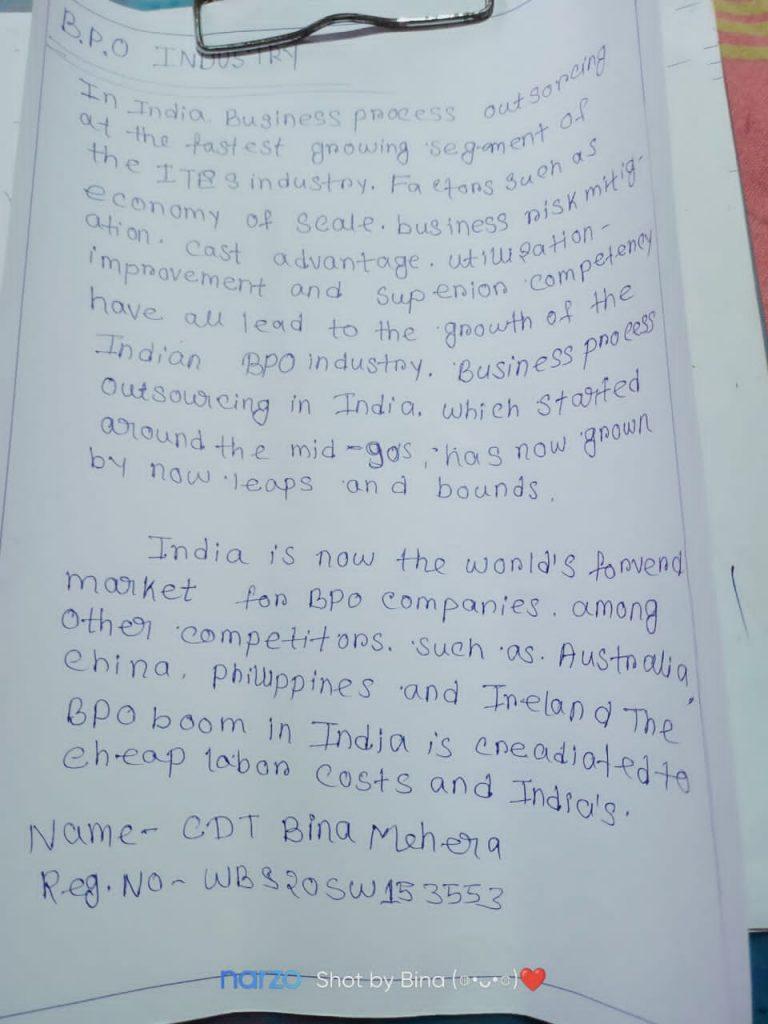 B.P.O INDUSTRY
In India Business process outsorcing
at the fastest growing segment of
the ITBS industry. Factors such as
economy of scale. business risk mitig-
ation. cast advantage. utilization-
improvement and superion competency
have all lead to the growth of the
Indian BPO industry. Business process
outsourcing in India. which started
around the mid-90s, has now grown
by now leaps and bounds.
India is now the world's forvend
market for BPO companies. among
other competitors. such as. Australia,
China, Philippines and Ireland The
BPO boom in India is creadiated to
cheap labor costs and India's.
Name- CDT Bina Mehera
Reg. No- WBS20SW153553
narzo Shot by Bina (๏•ᴗ•๏)❤️